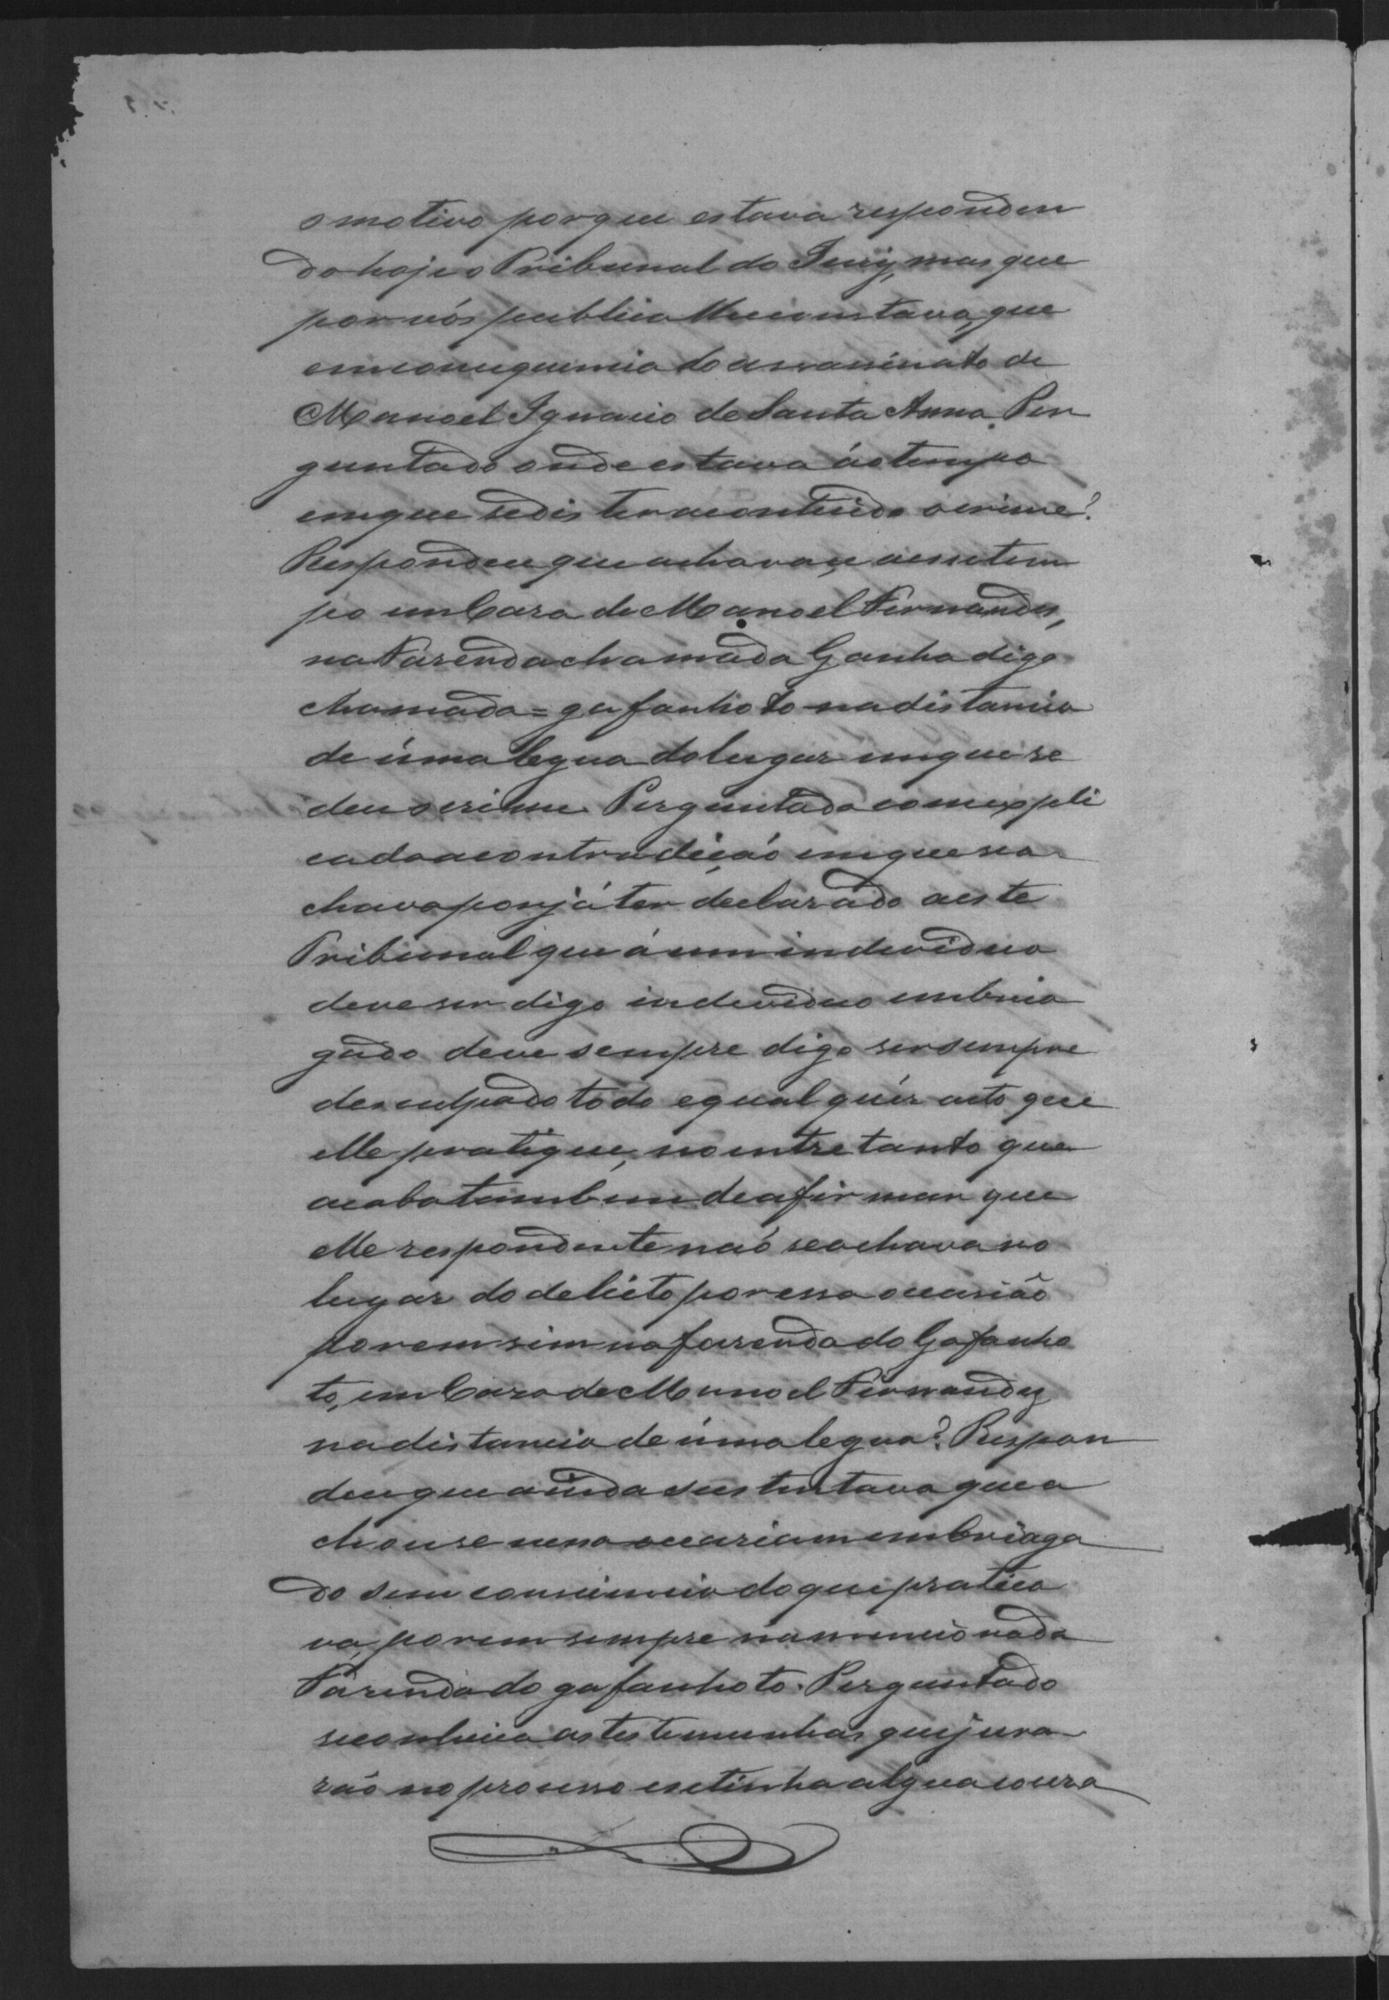 o motivo porque estava responden
do hoje o Tribunal do Jury, mas que
por vós publica lhe constava, que
em consequencia do assassinato de
Manoel Ignacio de Santa Anna. Per
guntado onde estava áo tempo
em que se dis ter acontecido o crime?
Respondeu que achava-se a esse tem
po em Casa de Manoel Fernandes,
na Fasenda chamada Ganha digo
chamada = gafanhoto na distancia
de úma legua do lugar em que se
deu o crime. Perguntado como expli
cada a contradição em que se a
chava por já ter declarado a este
Tribunal que á um individuo
deve ser digo individuo embria
gado deve sempre digo ser sempre
desculpado todo e qualquér acto que
elle pratique, no entretanto que
acaba tambem de afirmar que
elle respondente naõ se achava no
lugar do delicto por essa occasião
porem sim na fasenda do Gafanho
to, em Casa de Manoel Fernandes
na distancia de úma legua? Respon
deu que ainda sustentava que a
chou se nessa occasiam embriaga
do sem consciencia do que pratica
va, porem sempre na mencionada
Fasenda do gafanhoto. Perguntado
se conhecia as testemunhas que jura
raõ no processo e se tinha algua cousa